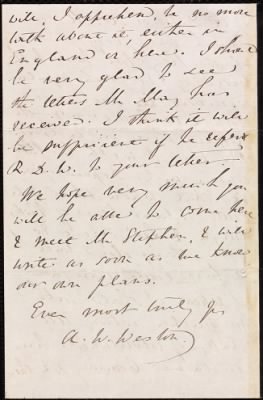 will, I apprehend, be no more
talk about it either in
England or here. I should
be very glad to see
the letters Mr May has
received. I think it will
be sufficient if he refers
R. D. W. to your letter.
We hope very much you
will be able to come here
& meet Mr Stephen, I will
write as soon as we know
our own plans.
Ever most truly yrs
A. W. Weston.